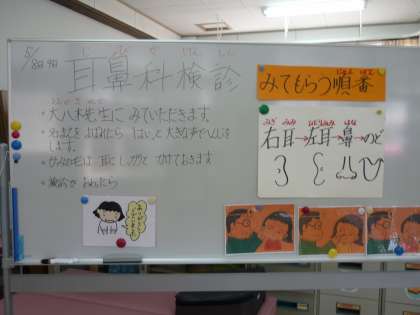 5/8(月)
じびかけんしん
耳鼻科検診
・大八木先生にみていただきます。
・名まえをよばれたら はいっと大きな声でへんじをします。
・かみの毛は 耳にしっかりと かけておきます
・検診が おわったら
ありがとうございました
みてもらう順番
じゅん ばん
みぎ みみ ひだりみみ はな
右耳→左耳→鼻→のど